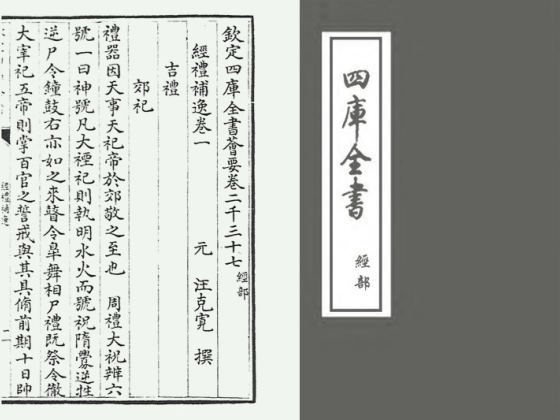 欽定四庫全書薈要卷二千三十七 經部
經禮補逸卷一
元 汪克寬 撰
吉禮
郊祀
禮器因天事天祀帝於郊敬之至也 周禮大祝辨六
號一曰神號凡大禋祀則執明水火而號祝隋釁逆牲
逆尸令鐘鼓右亦如之來瞽令臯舞相尸禮既祭令徹
大宰祀五帝則掌百官之誓戒與其具脩前期十日帥
四庫全書
經部